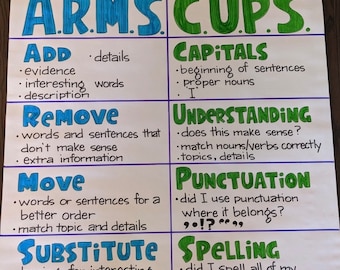 A.R.M.S.
ADD · details
· evidence
· interesting words
· description
REMOVE
· words and sentences that
don't make sense
· extra information
MOVE
· words or sentences for a
better order
· match topic and details
SUBSTITUTE
C.U.P.S.
CAPITALS
· beginning of sentences
· proper nouns
· I
UNDERSTANDING
· does this make sense?
· match nouns/verbs correctly
· topics, details
PUNCTUATION
· did I use punctuation
where it belongs?
SPELLING
· did I spell all of my